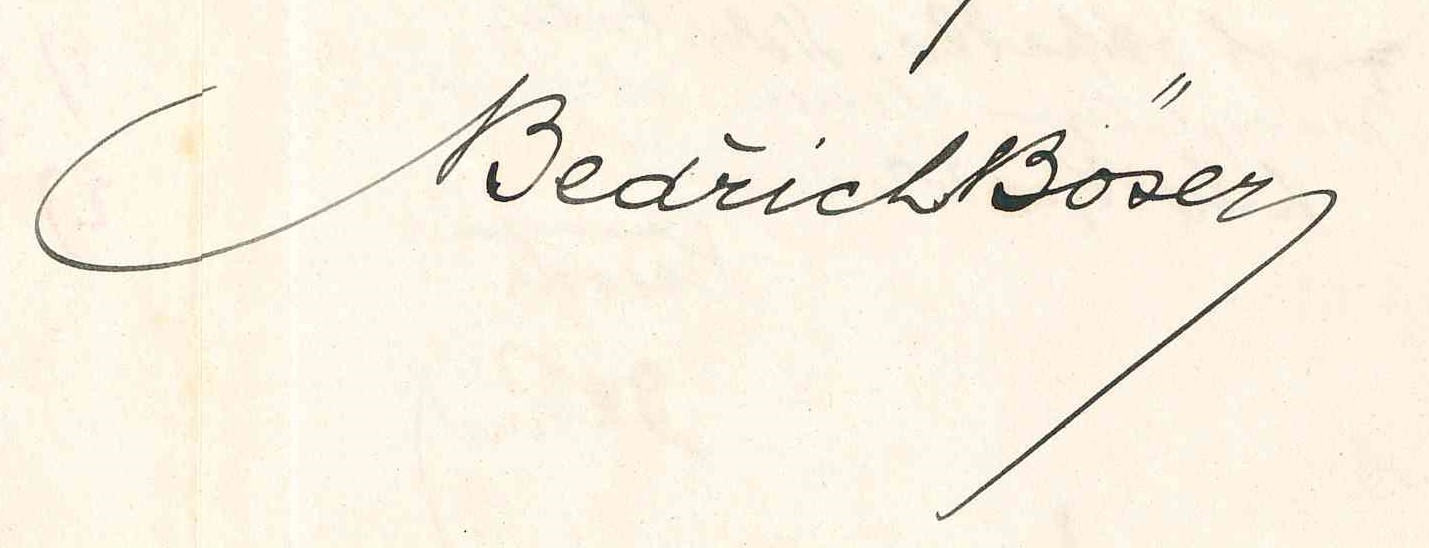 Bedřich Böser